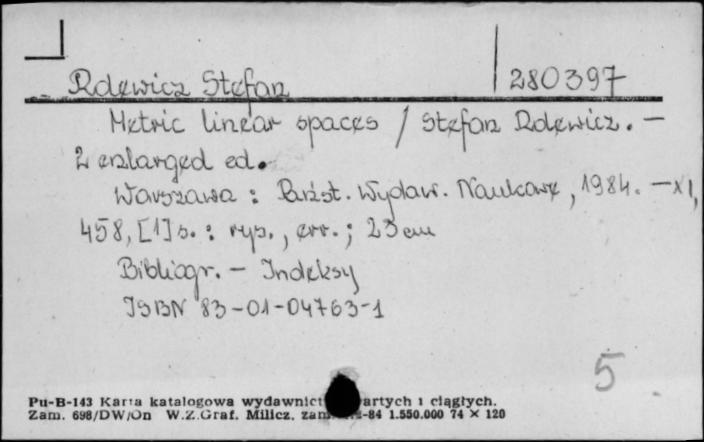 Rolewicz Stefan 280397
Metric linear spaces / Stefan Rolewicz. —
2 enlarged ed.
Warszawa : Państ. Wydaw. Naukowe, 1984. — XI,
458, [1] s. : rys., err. ; 23 cm
Bibliogr. — Indeksy
ISBN 83-01-04763-1
5
Pu-B-143 Karta katalogowa wydawnict artych i ciągłych.
Zam. 698/DW/On W.Z.Graf. Milicz. zam. -84 1.550.000 74 × 120